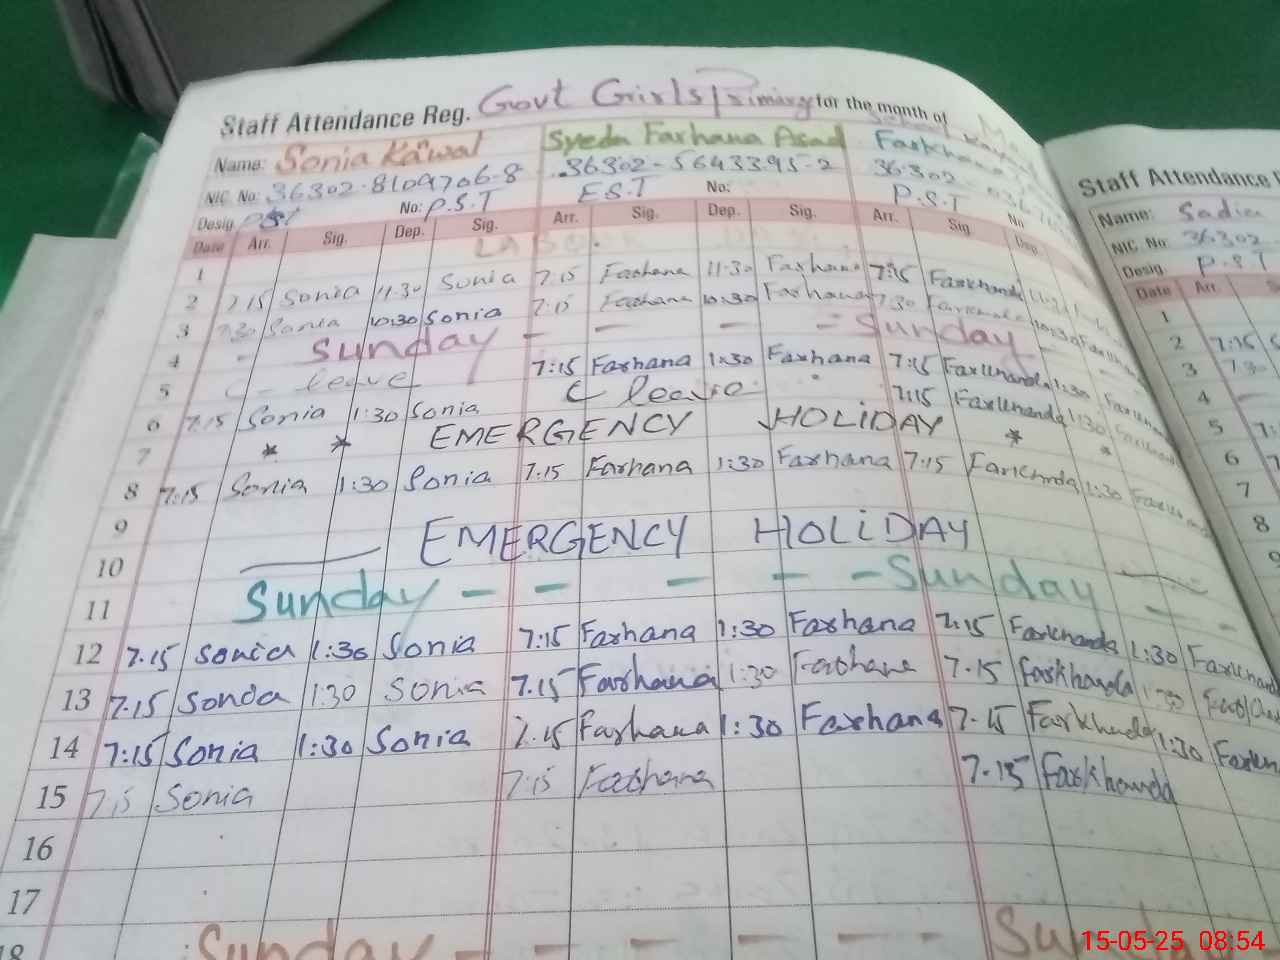 Staff Attendance Reg. Govt Girls Primary for the month of
Name: Sonia Kawal Syeda Farhana Asad
NIC. No: 36302-8109706-8 36302-5643395-2 36302-
Desig. PST No: P.S.T E.S.T No: P.S.T No
Date Arr. Sig. Dep. Sig. Arr. Sig. Dep. Sig. Arr. Sig. Dep.
1
2 7:15 Sonia 11:30 Sonia 7:15 Farhana 11:30 Farhana 7:15 Farkhanda
3 7:30 Sonia 10:30 Sonia 7:15 Farhana 10:30 Farhana 7:30 Farkhanda 10:30
4 - Sunday - - - - Sunday
5 C - leave 7:15 Farhana 1:30 Farhana 7:15 Farkhanda 1:30
6 7:15 Sonia 1:30 Sonia C leave 7:15 Farkhanda 1:30
7 * * EMERGENCY HOLIDAY * *
8 7:15 Sonia 1:30 Sonia 7:15 Farhana 1:30 Farhana 7:15 Farkhnda 1:30
9
10 EMERGENCY HOLIDAY
11 Sunday - - - - - Sunday - -
12 7:15 Sonia 1:30 Sonia 7:15 Farhana 1:30 Farhana 7:15 Farkhanda 1:30 Farkhanda
13 7.15 Sonia 1:30 Sonia 7.15 Farhana 1:30 Farhana 7.15 Farkhanda 1:30
14 7:15 Sonia 1:30 Sonia 7.15 Farhana 1:30 Farhana 7.15 Farkhunda 1:30
15 7:15 Sonia 7:15 Farhana 7.15 Farkhanda
16
17
18 Sunday - - - - - - Sunday
Staff Attendance
Name: Sadia
NIC. No: 36302
Desig. P.S.T
Date Arr.
1
2 7:15
3 7:30
4
5
6
7
8
15-05-25 08:54